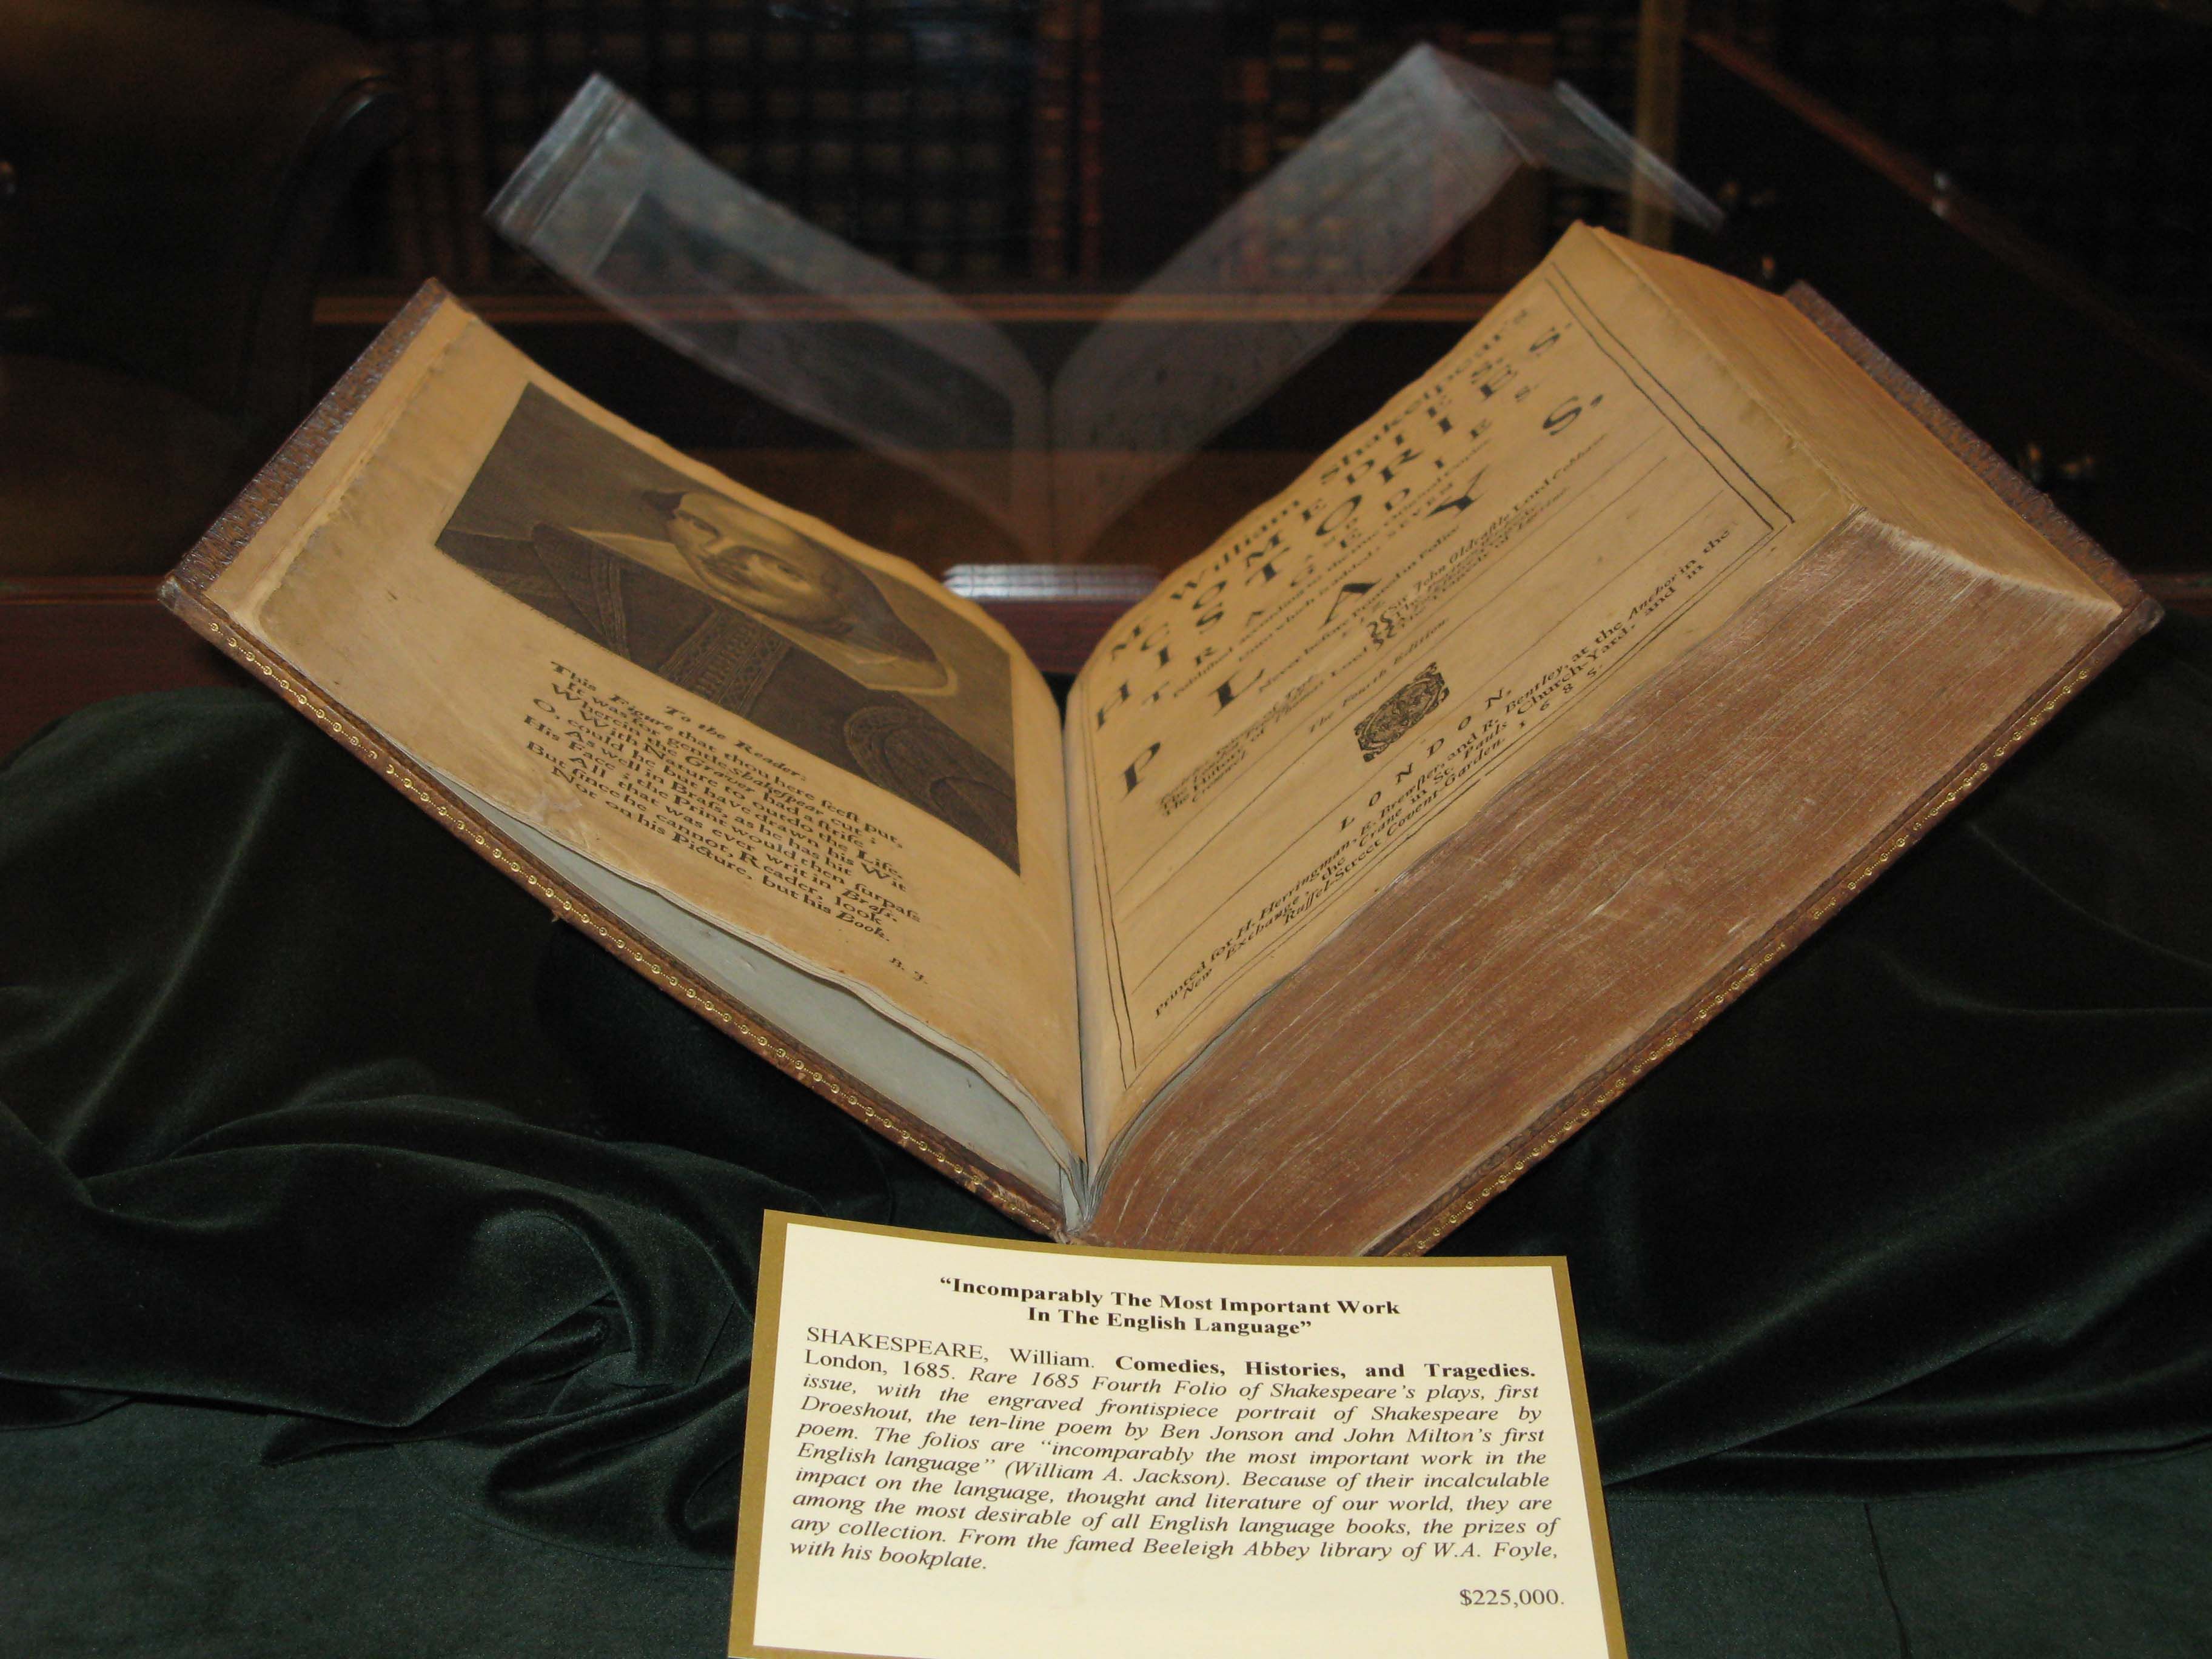 To the Reader.
This Figure that thou here seest put,
It was for gentle Shakespear cut;
Wherein the Graver had a strife
With Nature to outdo the Life.
O, could he but have drawn his Wit
As well in Brass, as he has hit
His Face; the Print would then surpass
All that was ever writ in Brass.
But since he cannot, Reader, look
Not on his Picture, but his Book.
B. J.
Mr. William Shakespear's
COMEDIES,
HISTORIES,
AND
TRAGEDIES.
Published according to the true Original Copies.
Unto which is added, SEVEN
PLAYS,
Never before Printed in Folio:
The History of Thomas Lord Cromwel.
Sir John Oldcastle Lord Cobham.
The Fourth Edition.
LONDON,
Printed for H. Herringman, E. Brewster, and R. Bentley, at the Anchor in the
New Exchange, the Crane in St. Pauls Church-Yard, and in
Russel-Street Covent-Garden. 1685.
“Incomparably The Most Important Work
In The English Language”
SHAKESPEARE, William. Comedies, Histories, and Tragedies.
London, 1685. Rare 1685 Fourth Folio of Shakespeare's plays, first
issue, with the engraved frontispiece portrait of Shakespeare by
Droeshout, the ten-line poem by Ben Jonson and John Milton's first
poem. The folios are “incomparably the most important work in the
English language” (William A. Jackson). Because of their incalculable
impact on the language, thought and literature of our world, they are
among the most desirable of all English language books, the prizes of
any collection. From the famed Beeleigh Abbey library of W.A. Foyle,
with his bookplate.
$225,000.